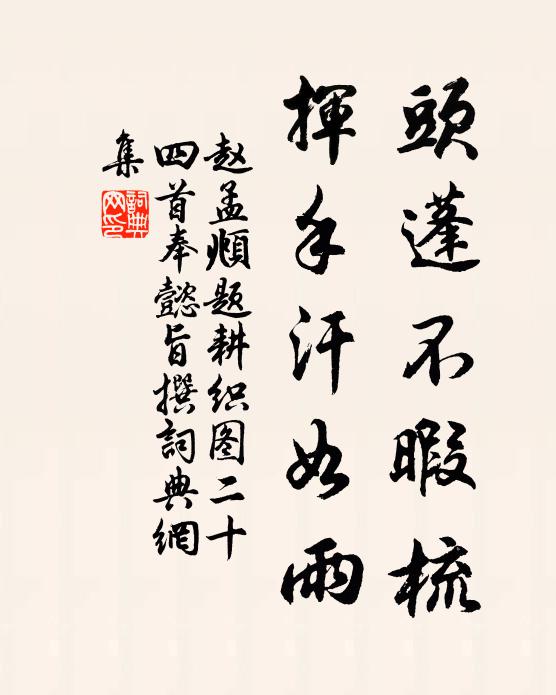 頭蓬不暇梳
揮手汗如雨
赵孟頫題耕织图二十
四首奉懿旨撰詞典網
集
詞典
网印